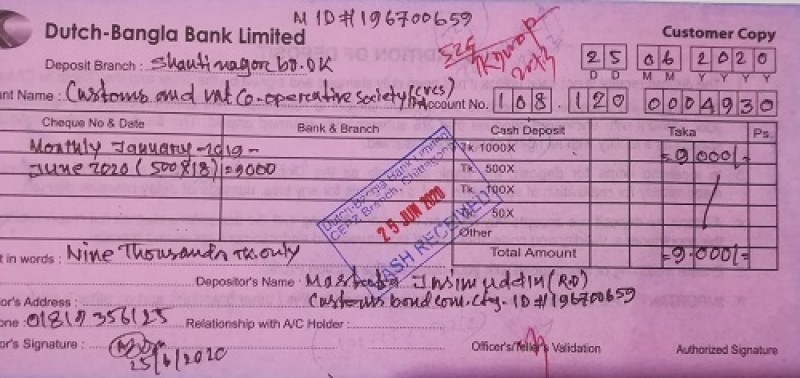 M ID # 196700659
Dutch-Bangla Bank Limited
Customer Copy
Deposit Branch : Shantinagar
25 06 2020
D D M M Y Y Y Y
nt Name : Customs and vat Co-operative society
Account No. 108 . 120 0004930
Cheque No & Date Bank & Branch Cash Deposit Taka Ps.
Monthly January-2019- Tk. 1000X =9000/-
June 2020 (500X18)=9000 Tk. 500X
Tk. 100X
50X
Other
Dutch-Bangla Bank Limited
CEPZ Branch, Chittagong
25 JUN 2020
CASH RECEIVED
Total Amount =9.000/-
t in words : Nine Thousands Tk only
Depositor's Name : Jasimuddin (R.O)
or's Address : Customs bond com. ctg. ID # 196700659
one : 01819 356125 Relationship with A/C Holder :
or's Signature :
25/6/2020
Officer's/Teller's Validation Authorized Signature